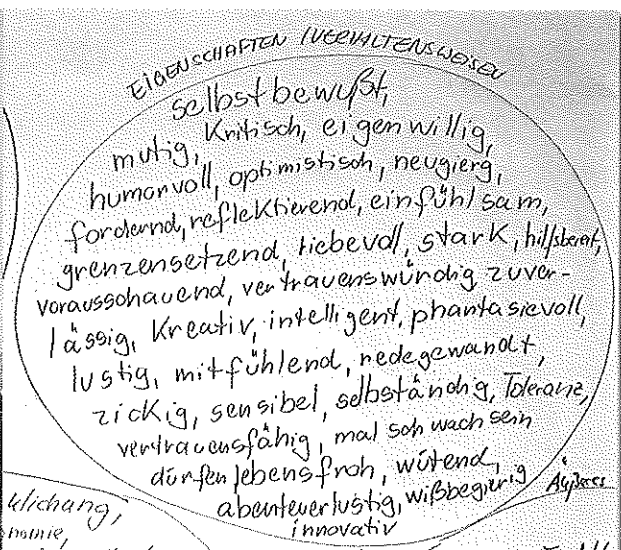 EIGENSCHAFTEN / VERHALTENSWEISEN
selbstbewußt,
mutig, Kritisch, eigenwillig,
humorvoll, optimistisch, neugierg,
fordernd, reflektierend, einfühlsam,
grenzensetzend, liebevoll, stark, hilfsbereit,
vorausschauend, vertrauenswürdig zuver-
lässig, Kreativ, intelligent, phantasievoll,
lustig, mitfühlend, redegewandt,
zickig, sensibel, selbständig, Toleranz,
vertrauensfähig, mal schwach sein
dürfen lebensfroh, wütend,
abenteuerlustig, wißbegierig
innovativ
Äußeres